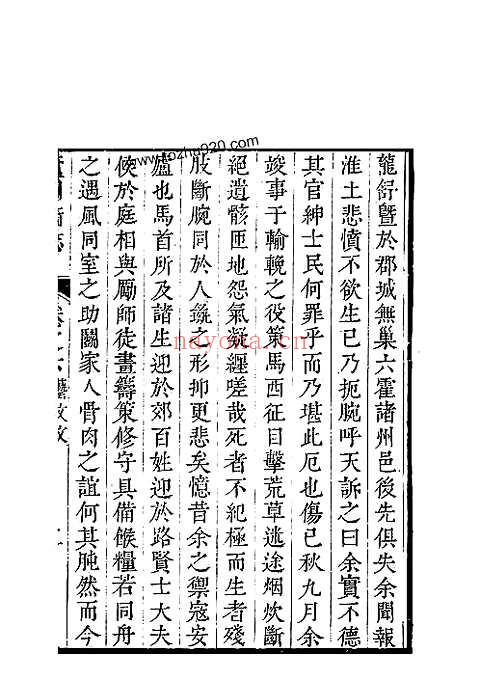 龍舒暨於郡城無巢六霍諸州邑後先俱失余聞報
淮土悲憤不欲生已乃扼腕呼天訴之曰余實不德
其官紳士民何罪乎而乃堪此厄也傷已秋九月余
竣事于輸輓之役策馬西征目擊荒草迷途烟炊斷
絕遺骸匝地怨氣凝纏嗟哉死者不紀極而生者殘
肢斷腕同於人彘之形抑更悲矣憶昔余之禦寇安
廬也馬首所及諸生迎於郊百姓迎於路賢士大夫
候於庭相與勵師徒畫籌策修守具備餱糧若同舟
之遇風同室之助鬭家人骨肉之誼何其肫然而今
藝文
www.fozhu920.com
nayona.cn